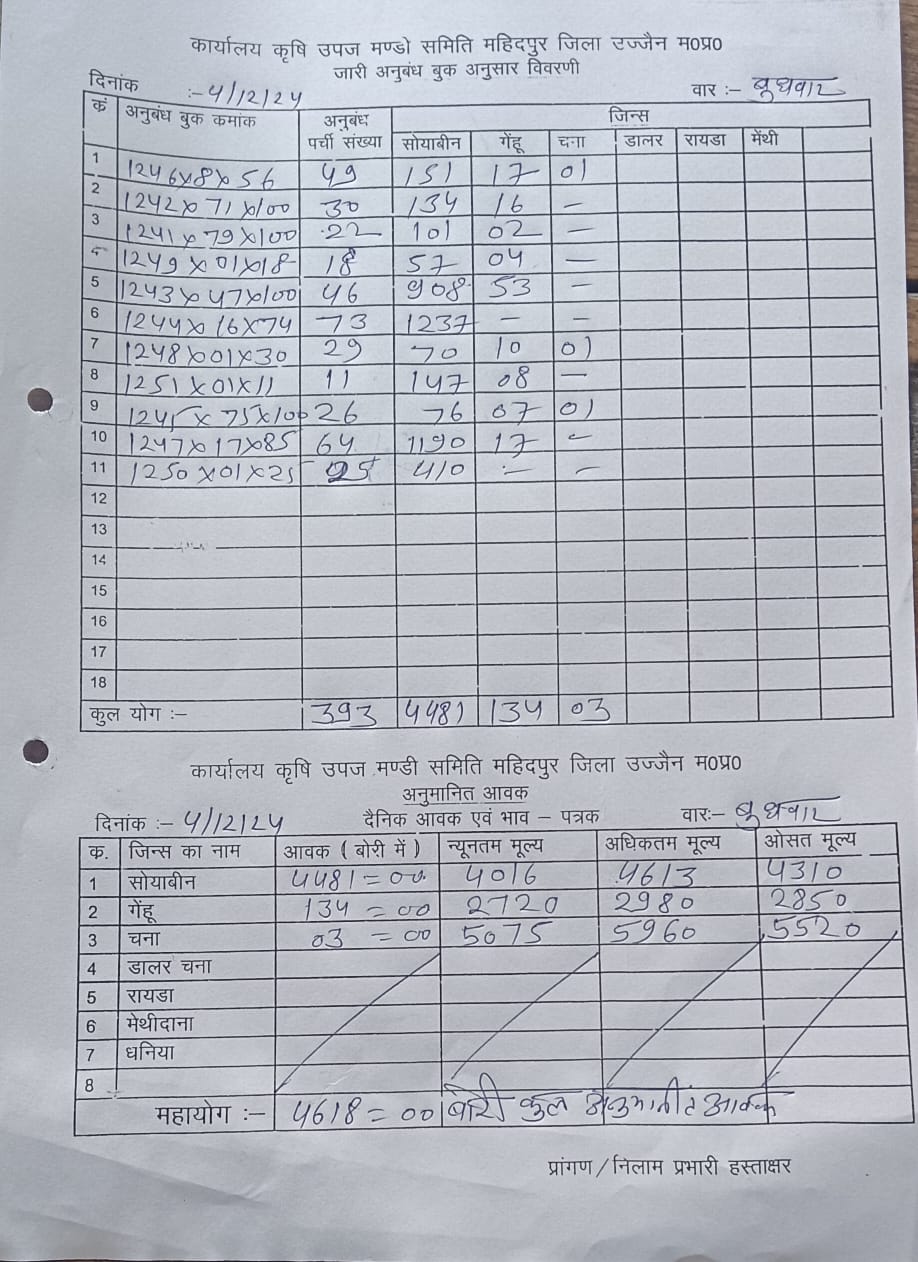 कार्यालय कृषि उपज मण्डी समिति महिदपुर जिला उज्जैन म०प्र०
जारी अनुबंध बुक अनुसार विवरणी
दिनांक :- 4/12/24 वार :- बूधवार
कं अनुबंध बुक कमांक अनुबंध पर्ची संख्या जिन्स
सोयाबीन गेंहू चना डालर रायडा मेंथी
1 1246x8x56 49 151 17 01
2 1242x71x100 30 134 16 -
3 1241x79x100 22 101 02 -
4 1249x01x18 18 57 04 -
5 1243x47x100 46 908 53 -
6 1244x16x74 73 1237 - -
7 1248x01x30 29 70 10 01
8 1251x01x11 11 147 08 -
9 1245x75x100 26 76 07 01
10 1247x17x85 64 1190 17 -
11 1250x01x25 25 410 - -
12
13
14
15
16
17
18
कुल योग :- 393 4481 134 03
कार्यालय कृषि उपज मण्डी समिति महिदपुर जिला उज्जैन म०प्र०
अनुमानित आवक
दिनांक :- 4/12/24 दैनिक आवक एवं भाव - पत्रक वारः- बूधवार
क. जिन्स का नाम आवक ( बोरी में ) न्यूनतम मूल्य अधिकतम मूल्य ओसत मूल्य
1 सोयाबीन 4481=00 4016 4613 4310
2 गेंहू 134=00 2720 2980 2850
3 चना 03=00 5075 5960 5520
4 डालर चना
5 रायडा
6 मेथीदाना
7 धनिया
8
महायोग :- 4618=00 बोरी कुल आवक
प्रांगण/निलाम प्रभारी हस्ताक्षर